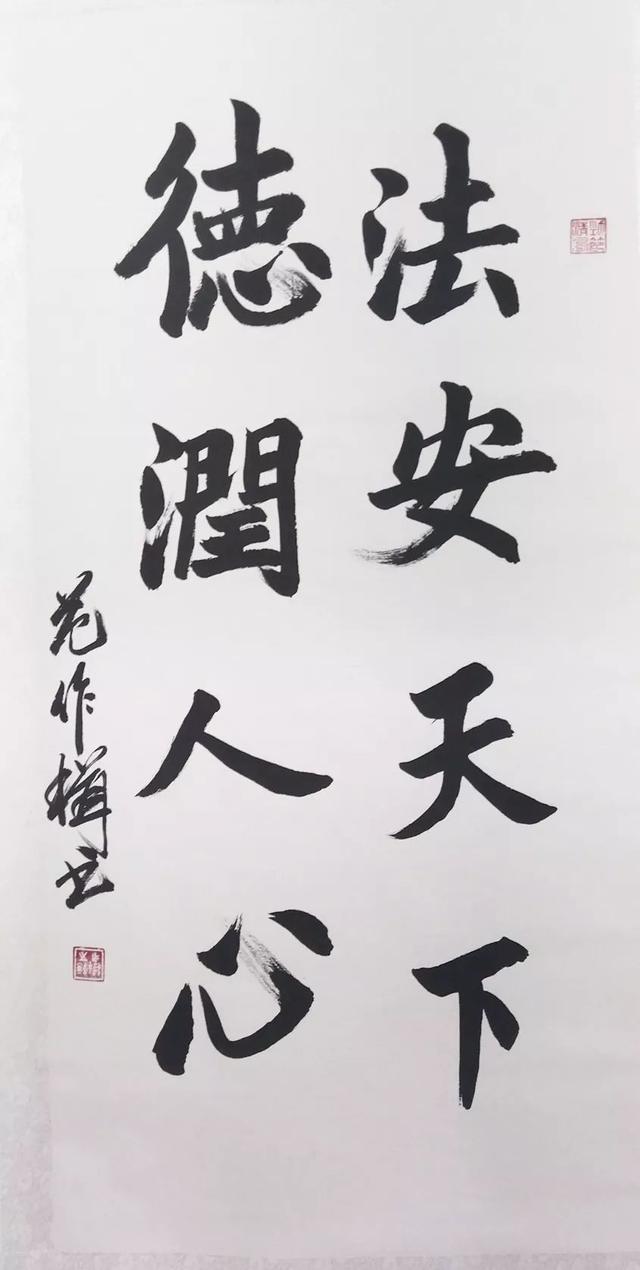 法安天下
德潤人心
范作楫书